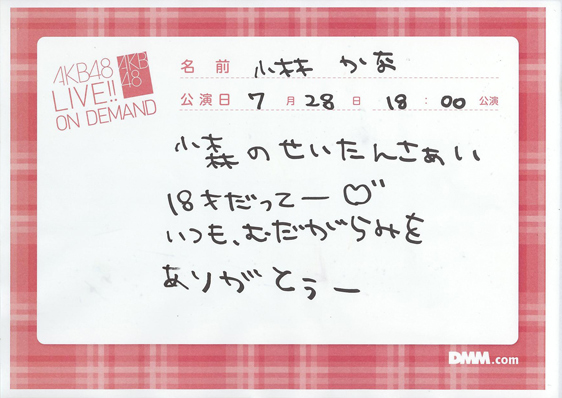 AKB48
LIVE!!
ON DEMAND
AKB
48
名前 小林 かな
公演日 7月28日 18:00 公演
小森のせいたんさぁい
18才だってー♡
いつも、むだがらみを
ありがとぅー
DMM.com